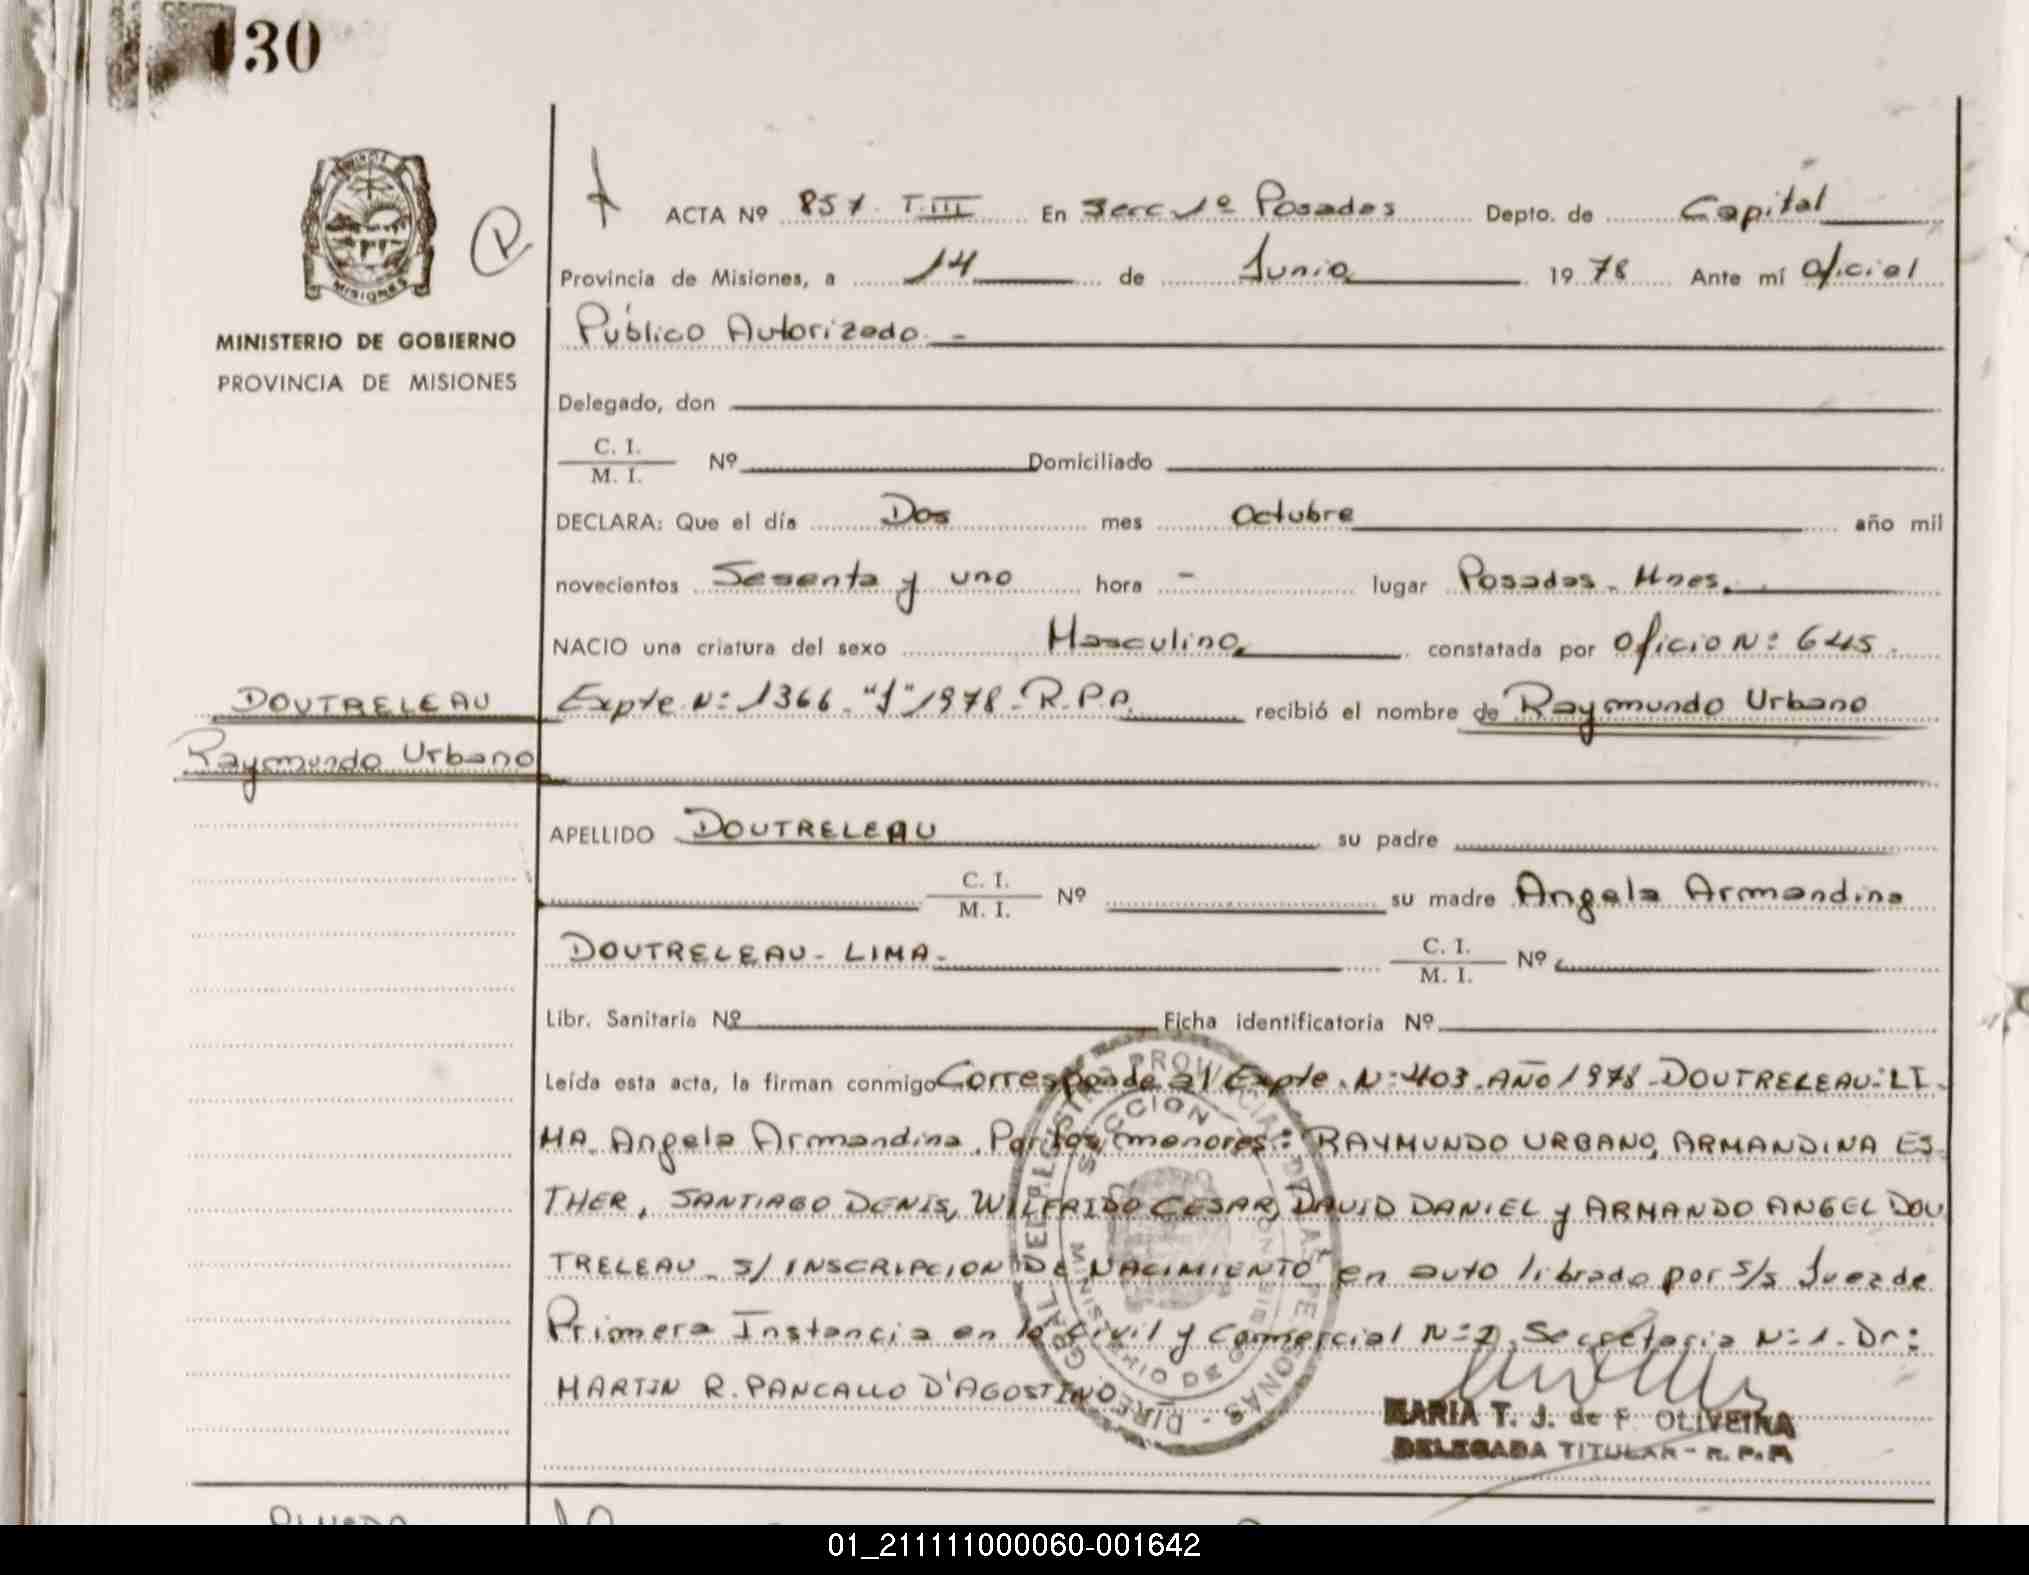 130
MISIONES
MINISTERIO DE GOBIERNO
PROVINCIA DE MISIONES
DOUTRELEAU
Raymundo Urbano
ACTA Nº 857 T.III En Secc 1º Posadas Depto. de Capital
Provincia de Misiones, a 14 de Junio 1978 Ante mí Oficial
Público Autorizado. -
Delegado, don
C. I.
M. I. Nº Domiciliado
DECLARA: Que el día Dos mes Octubre año mil
novecientos Sesenta y uno hora - lugar Posadas - Mnes.
NACIO una criatura del sexo Masculino constatada por Oficio Nº: 645.
Expte Nº: 1366 "J" 1978 - R.P.P. recibió el nombre de Raymundo Urbano
APELLIDO DOUTRELEAU su padre
C. I.
M. I. Nº su madre Angela Armandina
DOUTRELEAU - LIMA - C. I.
M. I. Nº
Libr. Sanitaria Nº Ficha identificatoria Nº
Leída esta acta, la firman conmigo Corresponde al Expte. Nº: 403. AÑO 1978 - DOUTRELEAU - LI-
MA. Angela Armandina. Por sus menores: RAYMUNDO URBANO, ARMANDINA ES-
THER, SANTIAGO DENIS, WILFRIDO CESAR, DAVID DANIEL y ARMANDO ANGEL DOU
TRELEAU - S/ INSCRIPCION DE NACIMIENTO en auto librado por S/S Juez de
Primera Instancia en lo Civil y Comercial Nº 2, Secretaria Nº: 1. Dr:
MARTIN R. PANCALLO D'AGOSTINO
DIREC. GRAL. DEL REGISTRO PROVINCIAL DE LAS PERSONAS -
SECCION
MINISTERIO DE GOBIERNO
MARIA T. J. de F. OLIVEIRA
DELEGADA TITULAR - R. P. P.
01_211111000060-001642